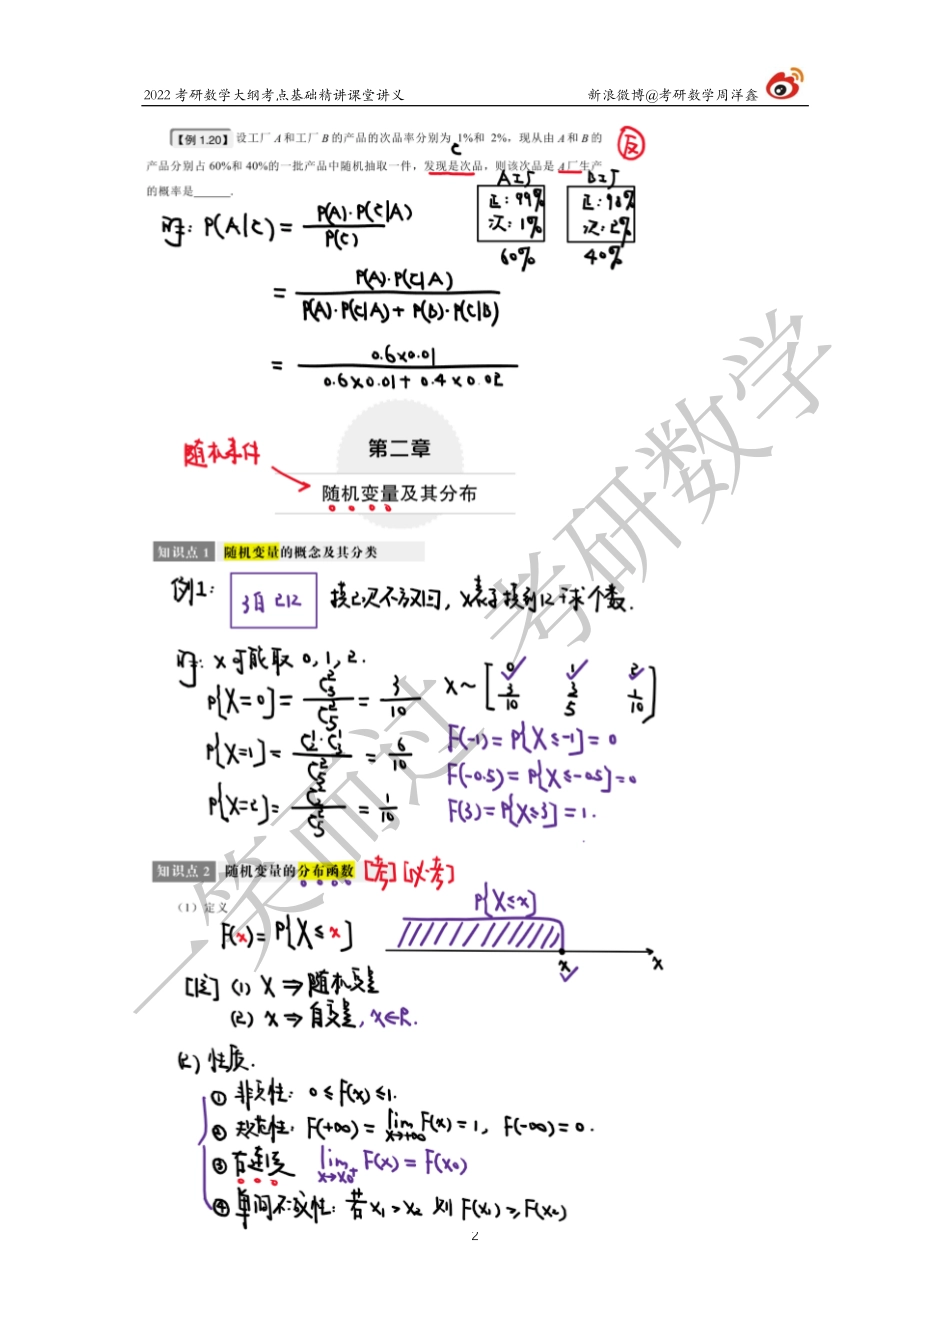 2022 考研数学大纲考点基础精讲课堂讲义 新浪微博@考研数学周洋鑫
【例 1.20】 设工厂 A 和工厂 B 的产品的次品率分别为 1%和 2%，现从由 A 和 B 的
反
C
产品分别占 60%和 40%的一批产品中随机抽取一件，发现是次品，则该次品是 A 厂生产
的概率是______.
A工厂 B工厂
正：99% 正：98%
次：1% 次：2%
60% 40%
解：P(A|C) = P(A)·P(C|A) / P(C)
= P(A)·P(C|A) / P(A)·P(C|A) + P(B)·P(C|B)
= 0.6×0.01 / 0.6×0.01 + 0.4×0.02
第二章
随机事件
随机变量及其分布
知识点 1 随机变量的概念及其分类
例1： 3白 2红 摸2次不放回，X表示摸到红球个数.
解：X可能取 0, 1, 2.
P{X=0} = C₃² / C₅² = 3/10
X ~ [0 1 2
3/10 3/5 1/10]
P{X=1} = C₂¹·C₃¹ / C₅² = 6/10
F(-1) = P{X≤-1} = 0
F(-0.5) = P{X≤-0.5} = 0
P{X=2} = C₂² / C₅² = 1/10
F(3) = P{X≤3} = 1.
知识点 2 随机变量的分布函数 [考] [必考]
（1）定义
P{X≤x}
F(x) = P{X≤x}
x x
[注] (1) X ⇒ 随机变量
(2) x ⇒ 自变量, x∈R.
(2) 性质.
① 非负性：0≤F(x)≤1.
② 规范性：F(+∞) = lim x→+∞ F(x) = 1, F(-∞) = 0.
③ 右连续 lim x→x₀⁺ F(x) = F(x₀)
④ 单调不减性：若 x₁ > x₂ 则 F(x₁) ≥ F(x₂)
2
一笑而过 考研数学